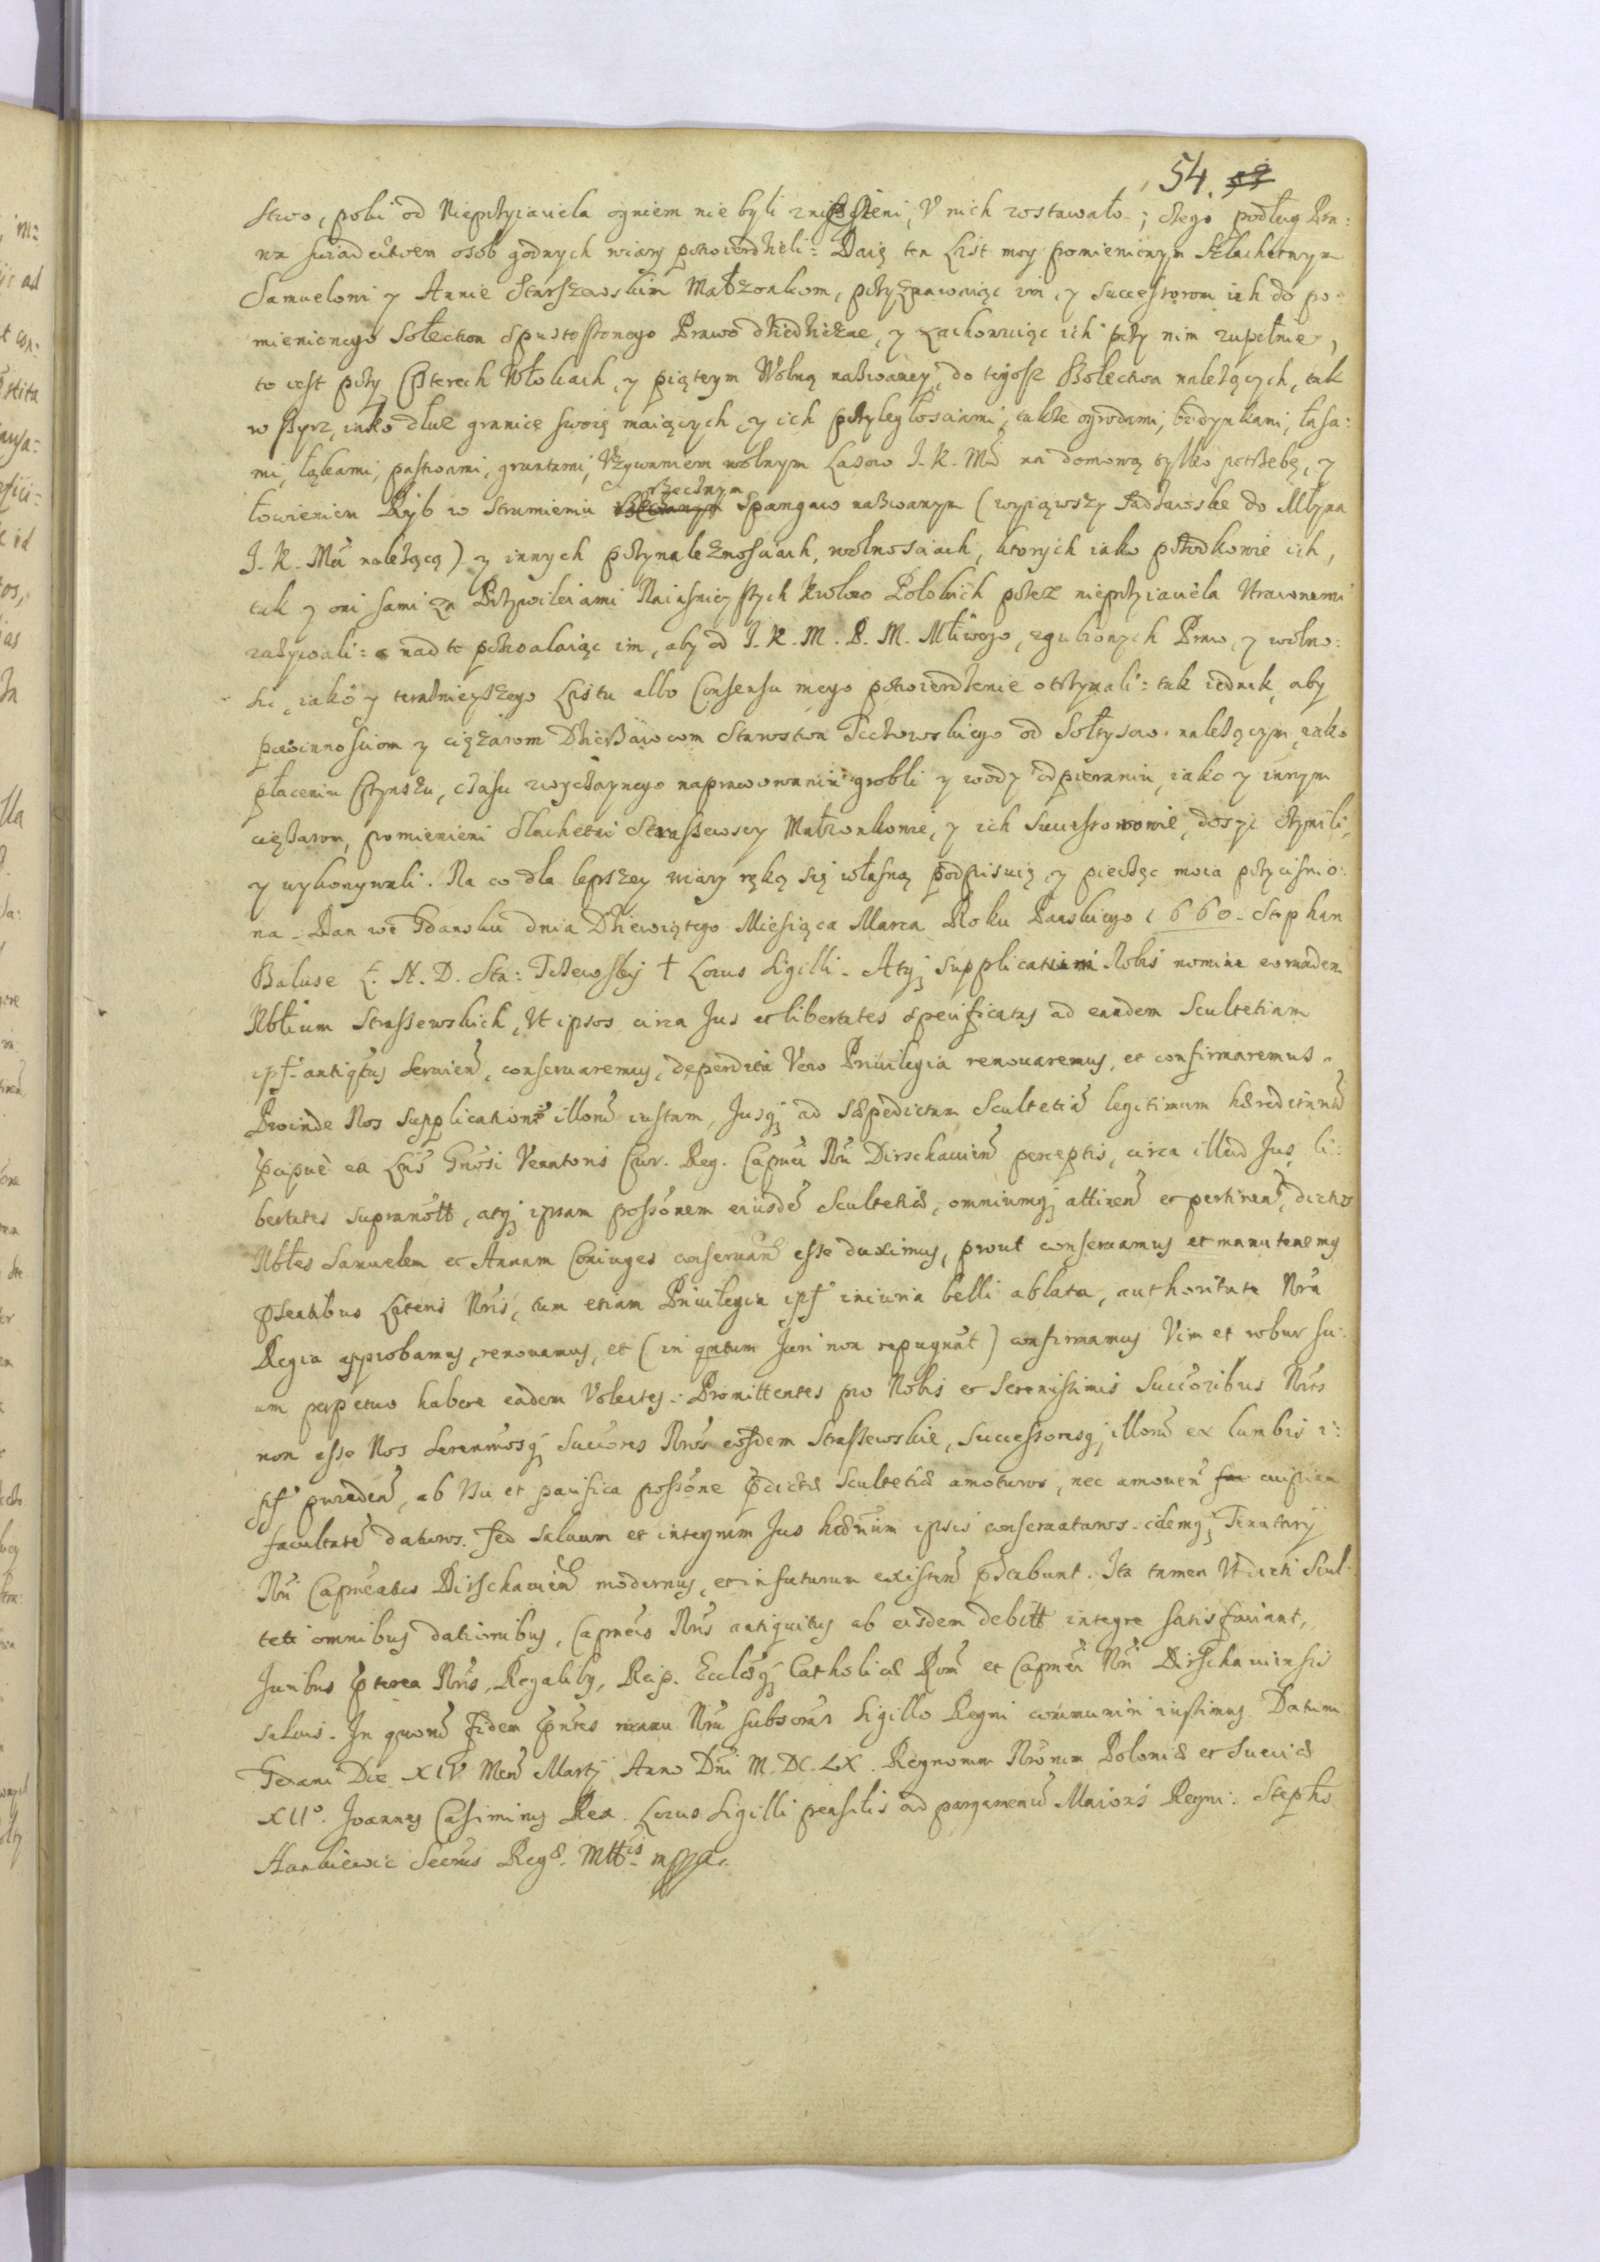 54. 53
stwo, poki od Nieprzyiaciela ogniem nie byli zniszczeni, V nich zostawało; czego podług Pra:
wa swiadectwem osob godnych wiary potwierdzieli: Daię ten List moy pomienionym Szlachetnym
Samuelowi y Annie Starszewskim Małzonkom, przyznawaiąc im, y Successorom ich do po:
mienionego Sołectwa spustoszonego Prawo dziedziczne, y zachowuiąc ich przy nim zupełnie,
to iest przy Czterech Włokach, y piątym Wolną nazwaney, do tegosz Sołectwa należących, tak
w szyrz, iako dłuz granice swoię maiących, y ich przyległosciami, także ogrodami, budynkami, lasa:
mi, łąkami, pastwami, gruntami, Vzywaniem wolnym Lasow J. K. Mći na domową tylko potrzebę, y
łowieniem Ryb w Strumieniu rzecznym Spangaw nazwanym (wyiąwszy Sadzawkę do Młyna
J. K. Mći należącą) y innych przynaleznosciach, wolnosciach, ktorych iako przodkowie ich,
tak y oni sami za Przywileiami Naiasnieyszych Krolow Polskich przez nieprzyiaciela Vtraconemi
zażywali: nad to pozwalaiąc im, aby od J. K. M. P. M. Mściwego, zgubionych Praw, y wolno:
sci, iako y teraznieyszego Listu albo Consensu mego potwierdzenie otrzymali: tak iednak, aby
powinnosciom y cięzarom Dzierzawcom Starostwa Tczewskiego od Sołtysow należącym, iako
płaceniu Czynszu, czasu zwyczaynego naprawowaniu grobli y wody odpieraniu, iako y innym
ciężarom, pomienieni Slachetni Straszewscy Małzonkowie, y ich Successorowie, dosyc czynili,
y wykonywali. Na co dla lepszey wiary ręką się własną podpisuię, y pieczęc moia przycisnio:
na. Dan we Gdansku dnia Dziewiątego Miesiąca Marca Roku Panskiego 1660. Stephan
Baluse Z. N. D. Sta: Tczewsky † Locus Sigilli. Atq; supplicatum Nobis nomine eorundem
Nbilium Straszewskich, Vt ipsos circa Jus et libertates specificatas ad eandem Scultetiam
ips antiqtus servien, conservaremus, deperdita Vero Privilegia renovaremus, et confirmaremus.
Proinde Nos supplicatione illorū iustam, Jusq; ad saepedictam Scultetia legitimum haereditariū
pcipue ea Lris Gnosi Venatoris Cur. Reg. Capnei Nri Dirschaviens perceptis, circa illud Jus, li:
bertates supranott, atq; ipsam possonem eiusde Scultetiae, omniumq; attinen et pertinen, dictos
Nbiles Samuelem et Annam Coniuges conservan esse duximus, prout conservamus et manutenemus
psentibus Literis Nris, tum etiam Privilegia ips iniuria belli ablata, authoritate Nra
Regia approbamus, renovamus, et (in qntum Juri non repugnat) confirmamus Vim et robur su:
um perpetuo habere eadem Volentes. Promittentes pro Nobis et Serenissimis Succoribus Nris
non esse Nos Serenmosq; Succores Nros eosdem Straszewskie, Successoresq; illorū ex lumbis i:
ps proceden, ab Vsu et pacifica possone pdictae Scultetiae amoturos, nec amoven cuipiam
facultate daturos. Sed salvum et integrum Jus haedrium ipsis conservaturos. idemq; Tenutarij
Nri Capneatus Dirschavien modernus, et in futurum existen pstabunt. Ita tamen Vt dicti Scul:
teti omnibus dationibus, Capneis Nris antiquitus ab eisdem debitt integre satisfaciant,
Juribus pterea Nris, Regalibus, Reip. Ecclaeq; Catholicae Rom et Capnei Nri Dirschaviensis
salvis. In quorū fidem pntes manu Nra subscrias Sigillo Regni communiri iussimus. Datum
Gedani Die XIV Mens Martij Anno Dni M. DC. LX. Regnorum Nrorum Poloniae et Sueciae
XII°. Joannes Casimirus Rex. Locus Sigilli pensilis ad pargamenū Maioris Regni. Stephs
Hankiewic Secrius Regae Mttis mppa.